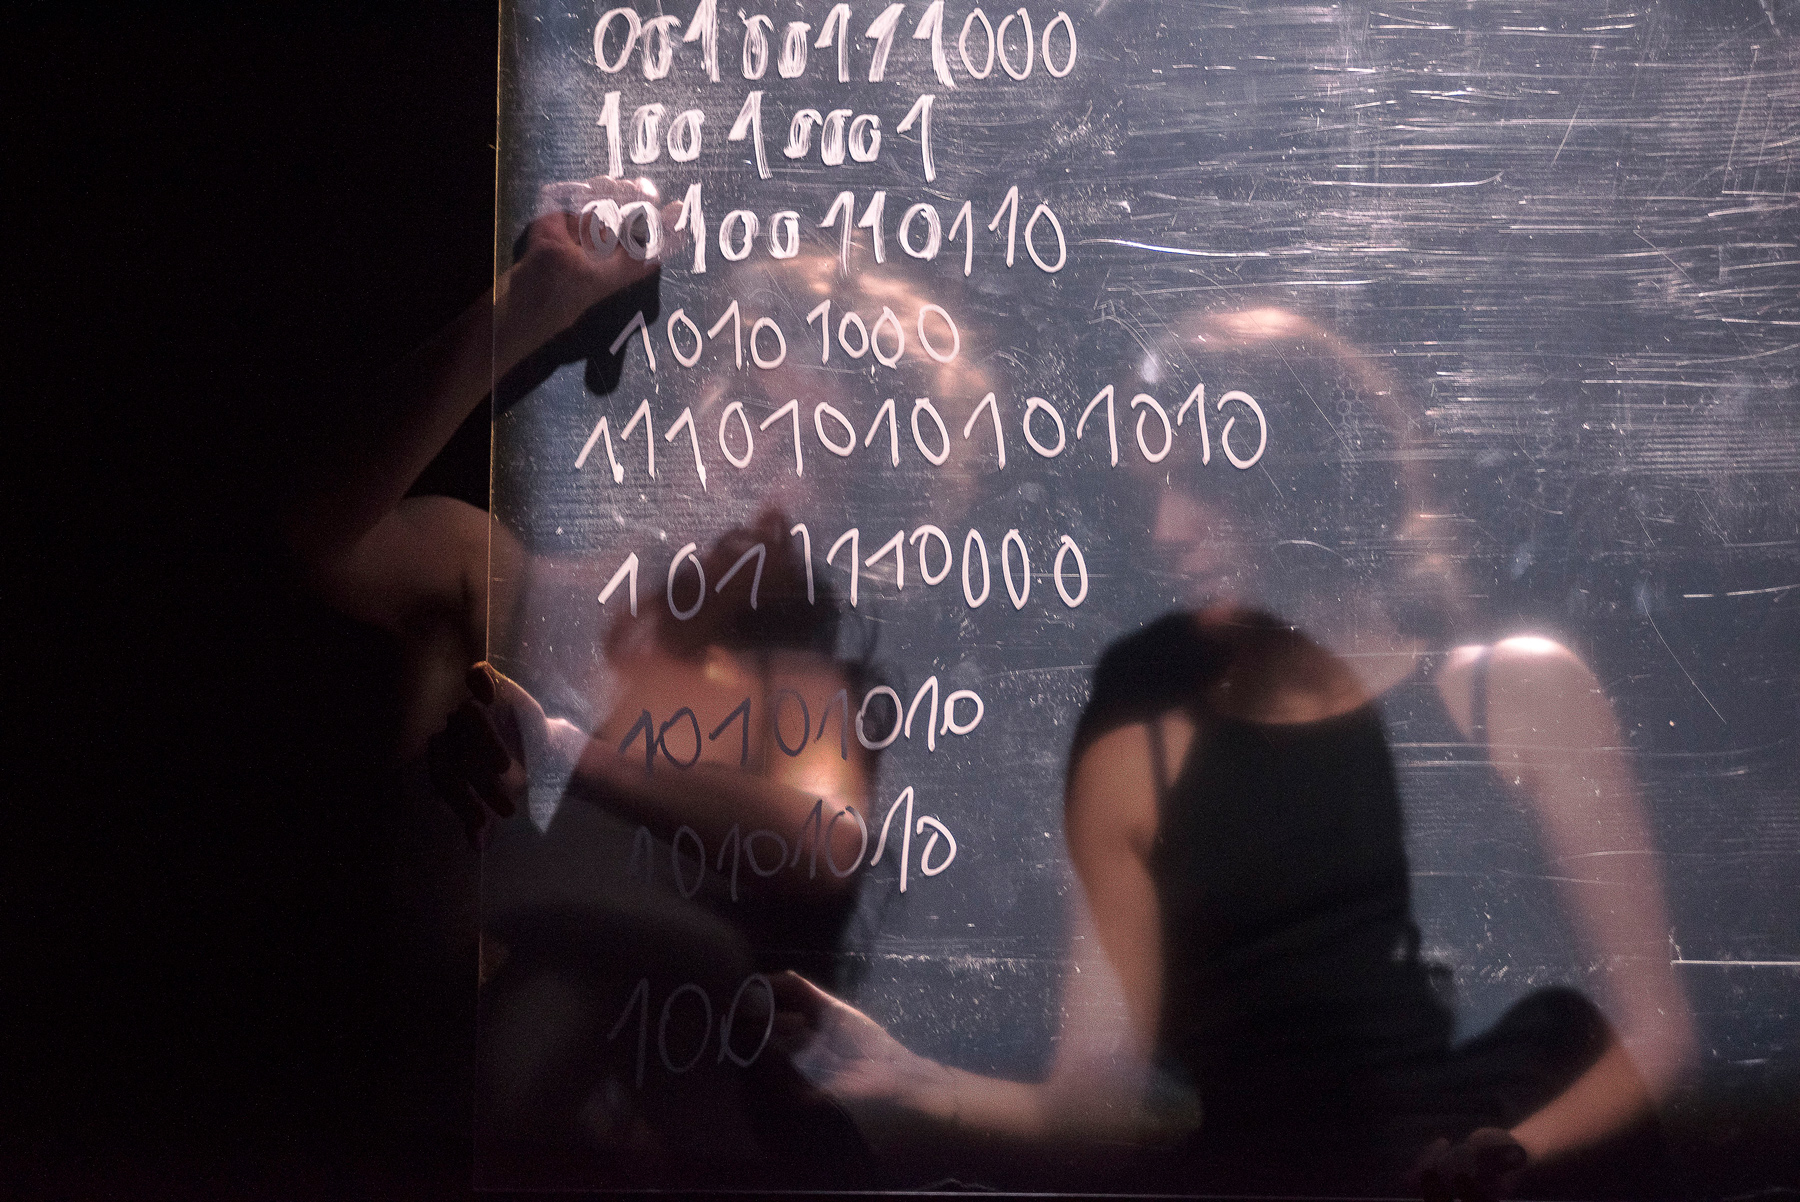 00100111000
100 1 000 1
00100110110
1010 1000
1110101010101010
10111110000
10101010
10101010
100